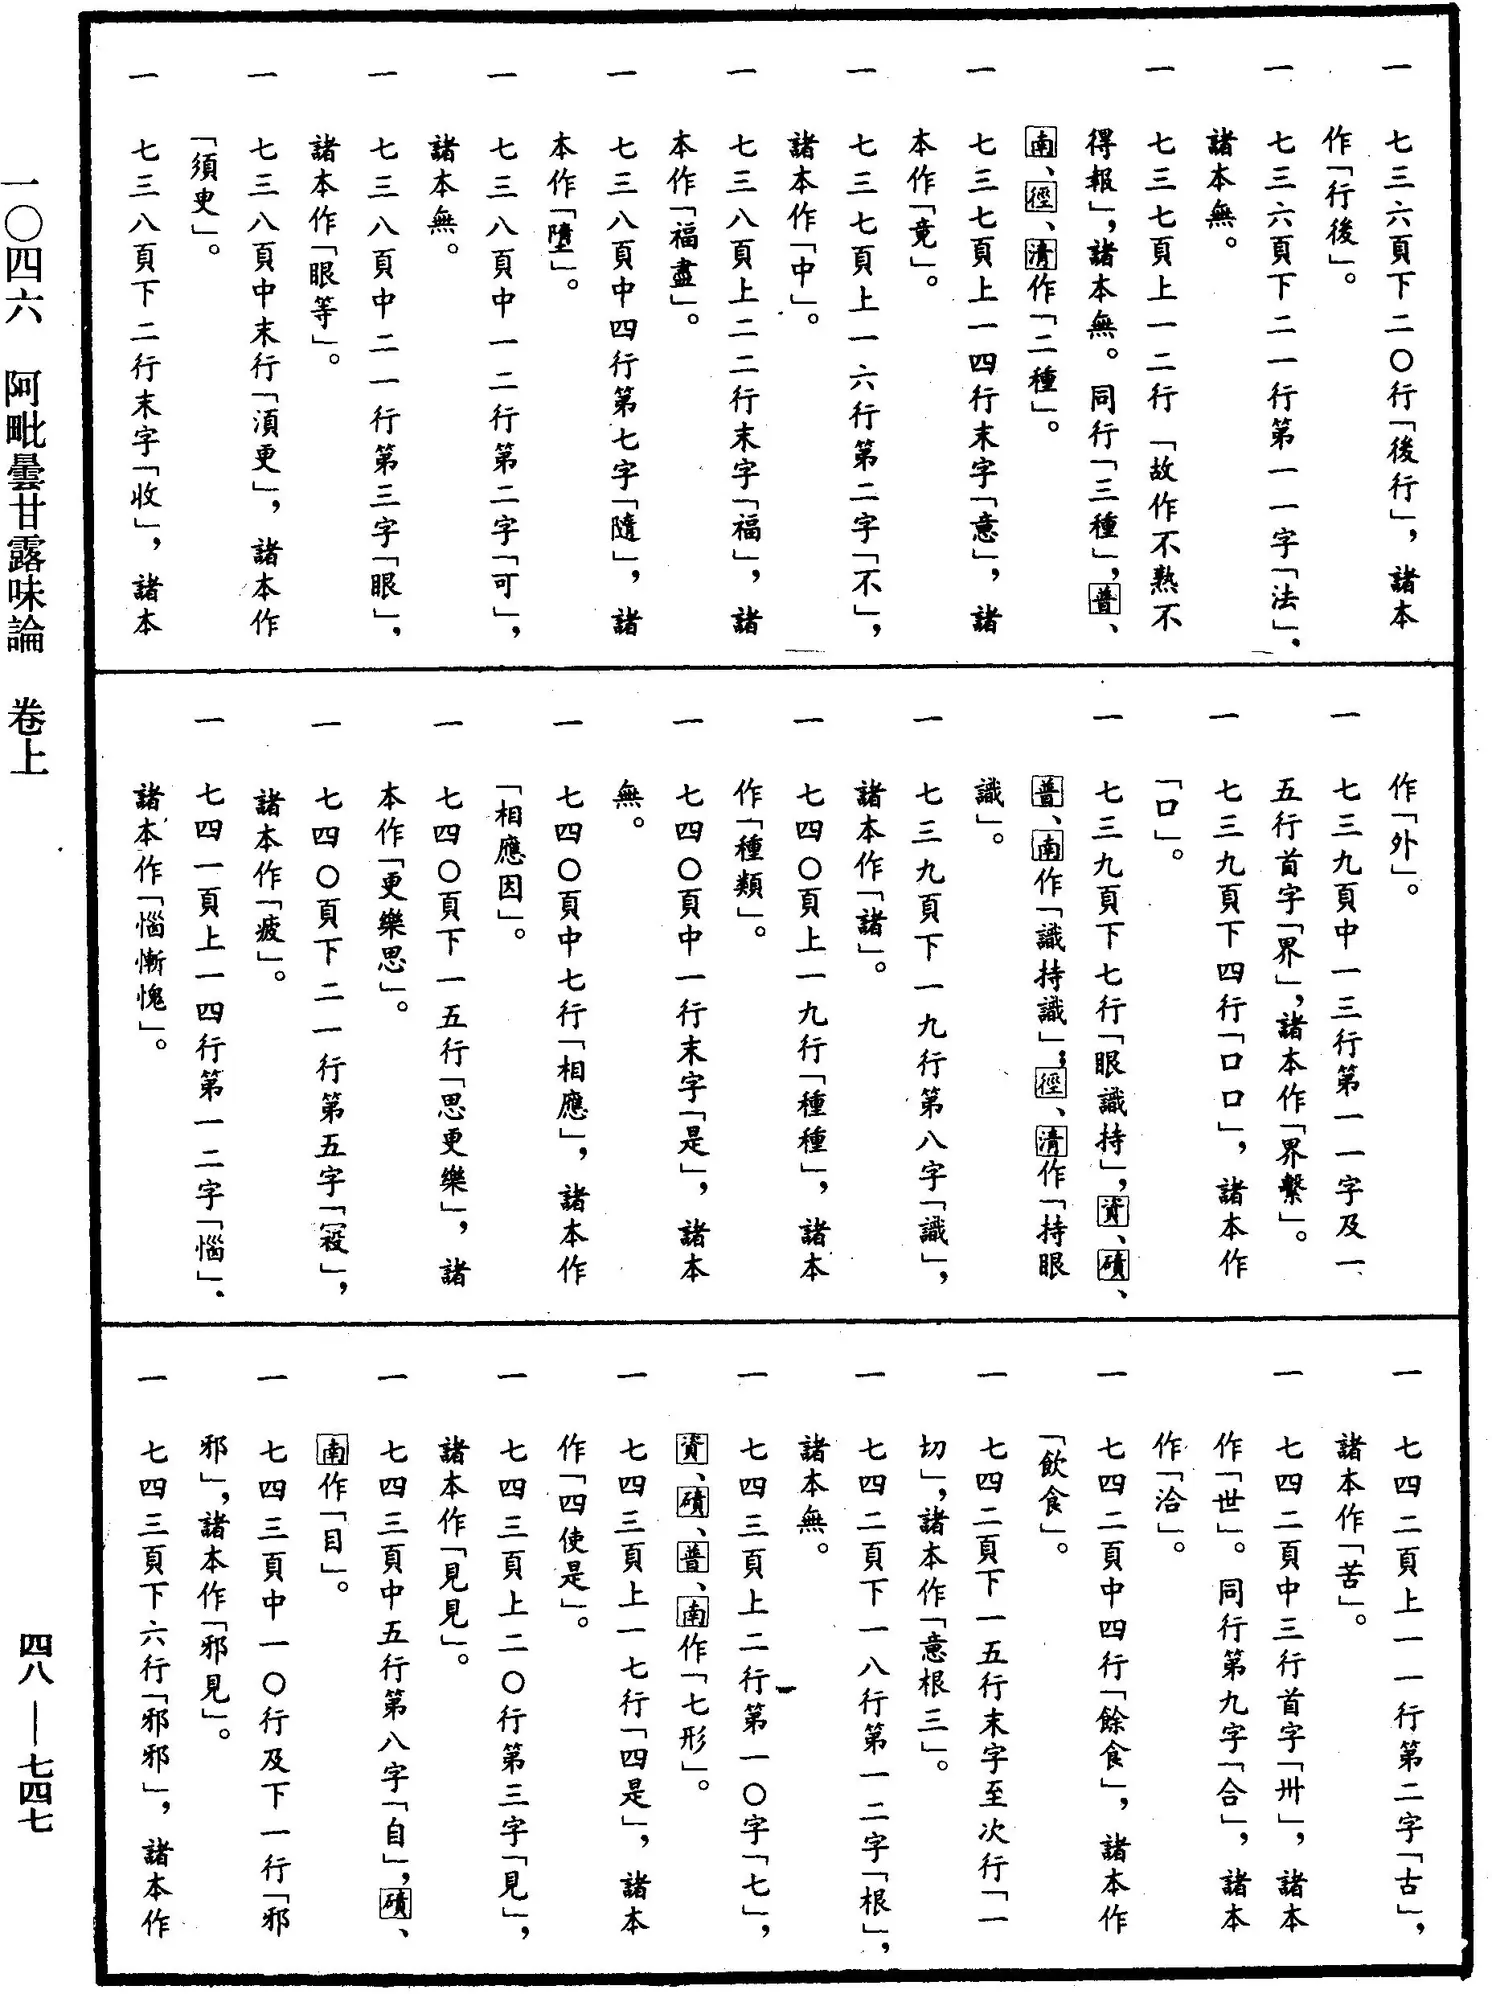 一 七三六頁下二〇行「後行」，諸本
作「行後」。
一 七三六頁下二一行第一一字「法」，
諸本無。
一 七三七頁上一二行「故作不熟不
得報」，諸本無。同行「三種」，普、
南、徑、清作「二種」。
一 七三七頁上一四行末字「意」，諸
本作「竟」。
一 七三七頁上一六行第二字「不」，
諸本作「中」。
一 七三八頁上二二行末字「福」，諸
本作「福盡」。
一 七三八頁中四行第七字「隨」，諸
本作「墮」。
一 七三八頁中一二行第二字「可」，
諸本無。
一 七三八頁中二一行第三字「眼」，
諸本作「眼等」。
一 七三八頁中末行「湏更」，諸本作
「須臾」。
一 七三八頁下二行末字「收」，諸本
作「外」。
一 七三九頁中一三行第一一字及一
五行首字「界」，諸本作「界繫」。
一 七三九頁下四行「口口」，諸本作
「口」。
一 七三九頁下七行「眼識持」，資、磧、
普、南作「識持識」；徑、清作「持眼
識」。
一 七三九頁下一九行第八字「識」，
諸本作「諸」。
一 七四〇頁上一九行「種種」，諸本
作「種類」。
一 七四〇頁中一行末字「是」，諸本
無。
一 七四〇頁中七行「相應」，諸本作
「相應因」。
一 七四〇頁下一五行「思更樂」，諸
本作「更樂思」。
一 七四〇頁下二一行第五字「𥧌」，
諸本作「疲」。
一 七四一頁上一四行第一二字「惱」，
諸本作「惱慚愧」。
一 七四二頁上一一行第二字「古」，
諸本作「苦」。
一 七四二頁中三行首字「卅」，諸本
作「世」。同行第九字「合」，諸本
作「洽」。
一 七四二頁中四行「餘食」，諸本作
「飲食」。
一 七四二頁下一五行末字至次行「一
切」，諸本作「意根三」。
一 七四二頁下一八行第一二字「根」，
諸本無。
一 七四三頁上二行第一〇字「七」，
資、磧、普、南作「七形」。
一 七四三頁上一七行「四是」，諸本
作「四使是」。
一 七四三頁上二〇行第三字「見」，
諸本作「見見」。
一 七四三頁中五行第八字「自」，磧、
南作「目」。
一 七四三頁中一〇行及下一行「邪
邪」，諸本作「邪見」。
一 七四三頁下六行「邪邪」，諸本作
一〇四六 阿毗曇甘露味論 卷上
四八—七四七